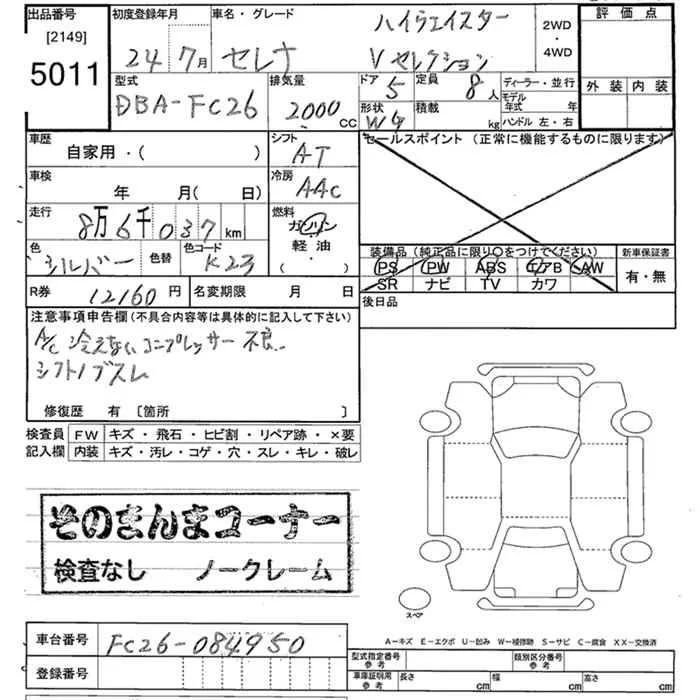 出品番号
[2149]
5011
初度登録年月
24年 7月
車名・グレード
セレナ
ハイウェイスター
Vセレクション
2WD
・
4WD
評価点
外装 内装
型式
DBA-FC26
排気量
2000 CC
ドア
5
定員
8人
形状
積載
kg
ディーラー・並行
モデル
年式 年
ハンドル 左・右
車歴
自家用・( )
シフト
AT
セールスポイント (正常に機能するものに限ります)
車検
年 月( 日)
冷房
AAC
走行
8万6千037km
燃料
ガソリン
軽油
( ・ )
色
シルバー
色替
色コード
K23
装備品(純正品に限り〇をつけてください)
PS PW ABS エアB AW
SR ナビ TV カワ
新車保証書
有・無
R券
12160円
名変期限 月 日
後日品
注意事項申告欄(不具合内容等は具体的に記入して下さい)
A/C 冷えない コンプレッサー不良
シフトノブスレ
修復歴 有 [箇所 ]
検査員
記入欄
FW キズ・飛石・ヒビ割・リペア跡・×要
内装 キズ・汚レ・コゲ・穴・スレ・キレ・破レ
そのまんまコーナー
検査なし ノークレーム
スペア
A-キズ E-エクボ U-凹み W-補修跡 S-サビ C-腐食 XX-交換済
車台番号
FC26-084950
登録番号
型式指定番号
参考
類別区分番号
参考
車庫証明用
参考
長さ cm
幅 cm
高さ cm